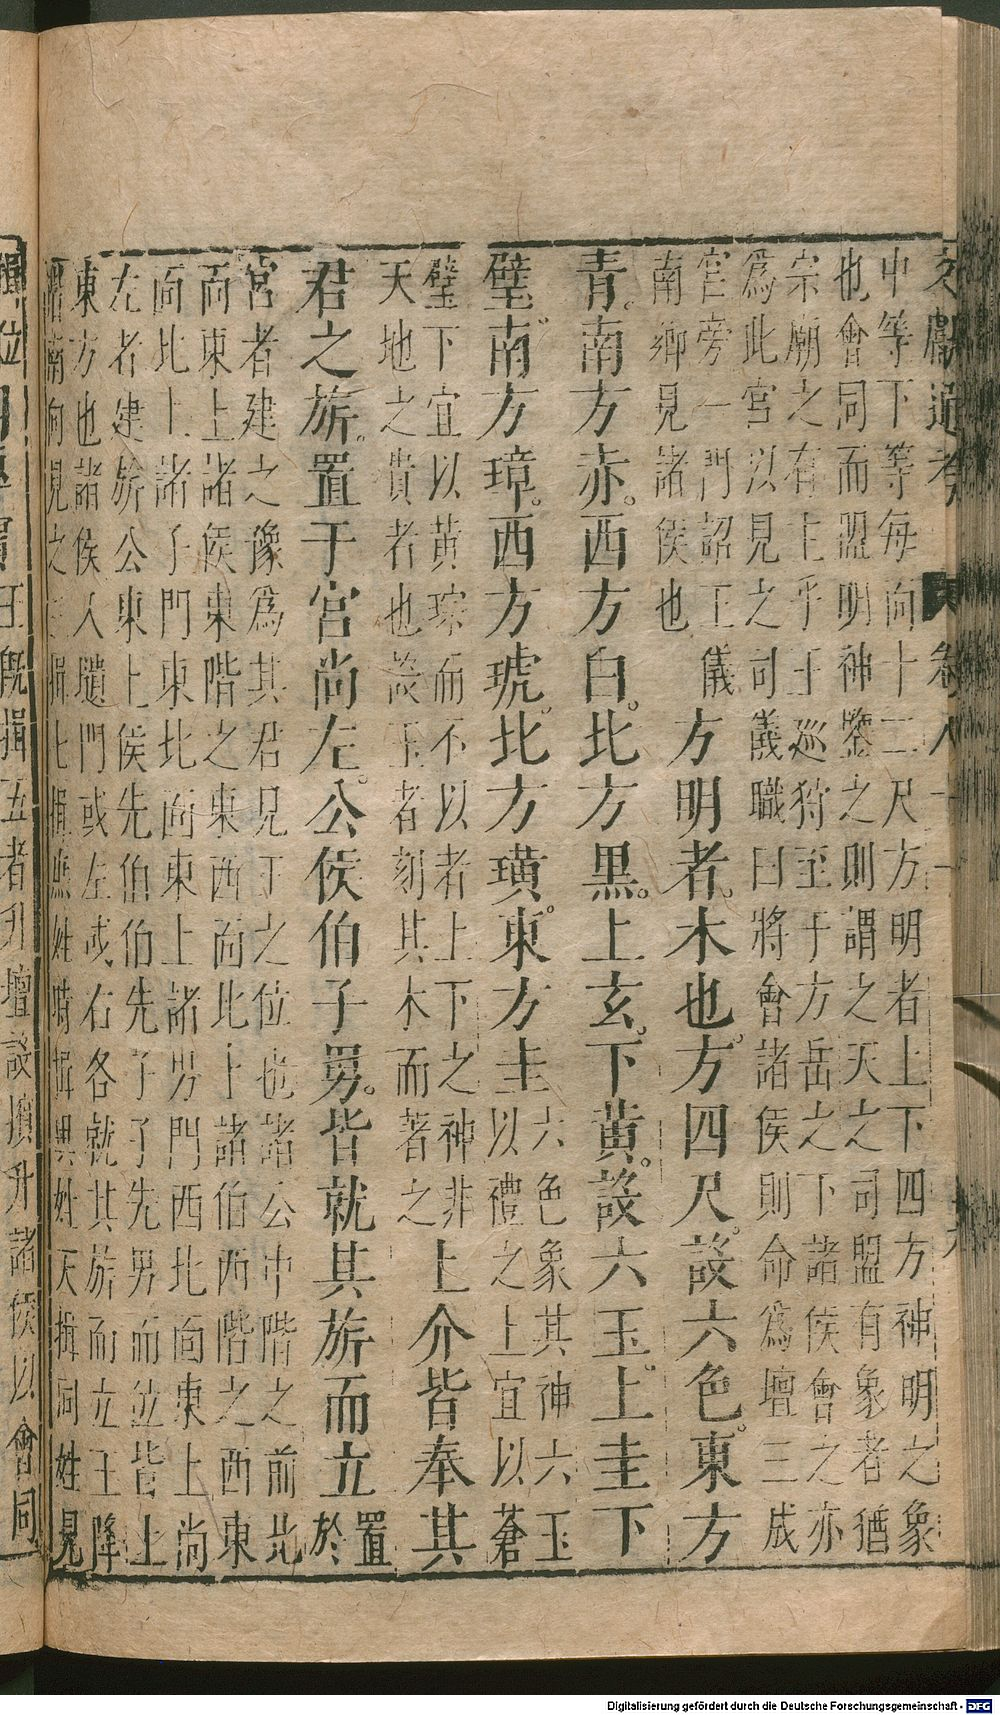 文獻通考 卷八十一
中等下等每面十二尺方明者上下四方神明之象
也會同而盟明神鑒之則謂之天之司盟有象者猶
宗廟之有主乎王巡狩至于方岳之下諸侯會之亦
為此宮以見之司儀職曰將會諸侯則命為壇三成
宮旁一門詔王儀
南鄉見諸侯也
方明者木也方四尺設六色東方
青南方赤西方白北方黑上玄下黃設六玉上圭下
璧南方璋西方琥北方璜東方圭
六色象其神六玉
以禮之上宜以蒼
璧下宜以黃琮而不以者上下之神非
天地之貴者也設玉者刻其木而著之
上介皆奉其
君之旂置于宮尚左公侯伯子男皆就其旂而立
置
於
宮者建之豫為其君見王之位也諸公中階之前北
面東上諸侯東階之東西面北上諸伯西階之西東
面北上諸子門東北面東上諸男門西北面東上尚
左者建旂公東上侯先伯伯先子子先男而位皆上
東方也諸侯入壝門或左或右各就其旂而立王降
階南向見之三揖土揖庶姓時揖異姓天揖同姓見
揖位王既揖五者升壇設擯升諸侯以會同
Digitalisierung gefördert durch die Deutsche Forschungsgemeinschaft - DFG